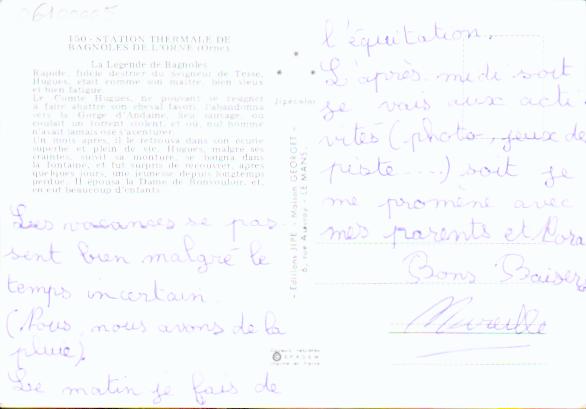 06100005
150 - STATION THERMALE DE
BAGNOLES DE L'ORNE (Orne)
La Légende de Bagnoles
Rapide, fidèle destrier du Seigneur de Tessé,
Hugues, était comme son maître, bien vieux
et bien fatigué.
Le Comte Hugues, ne pouvant se résigner
à faire abattre son cheval favori, l'abandonna
vers la Gorge d'Andaine, lieu sauvage, où
coulait un torrent violent et où, nul homme
n'avait jamais osé s'aventurer.
Un mois après, il le retrouva dans son écurie
superbe et plein de vie. Hugues, malgré ses
craintes, suivit sa monture, se baigna dans
la fontaine, et fut surpris de recouvrer, après
quelques jours, une jeunesse depuis longtemps
perdue. Il épousa la Dame de Bonvouloir, et,
en eut beaucoup d'enfants.
Les vacances se pas
sent bien malgré le
temps incertain.
(Nous, nous avons de la
pluie).
Le matin je fais de
l'équitation.
L'après midi soit
je vais aux acti
vités (photo, jeux de
piste ....) soit je
me promène avec
mes parents et
Bons Baisers
Mireille
- Editions JIPE - Maison GEORGET -
LE MANS